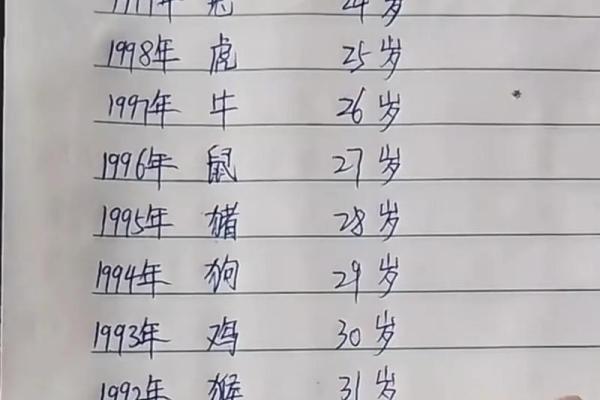 1999年 兔 24岁
1998年 虎 25岁
1997年 牛 26岁
1996年 鼠 27岁
1995年 猪 28岁
1994年 狗 29岁
1993年 鸡 30岁
1992年 猴 31岁